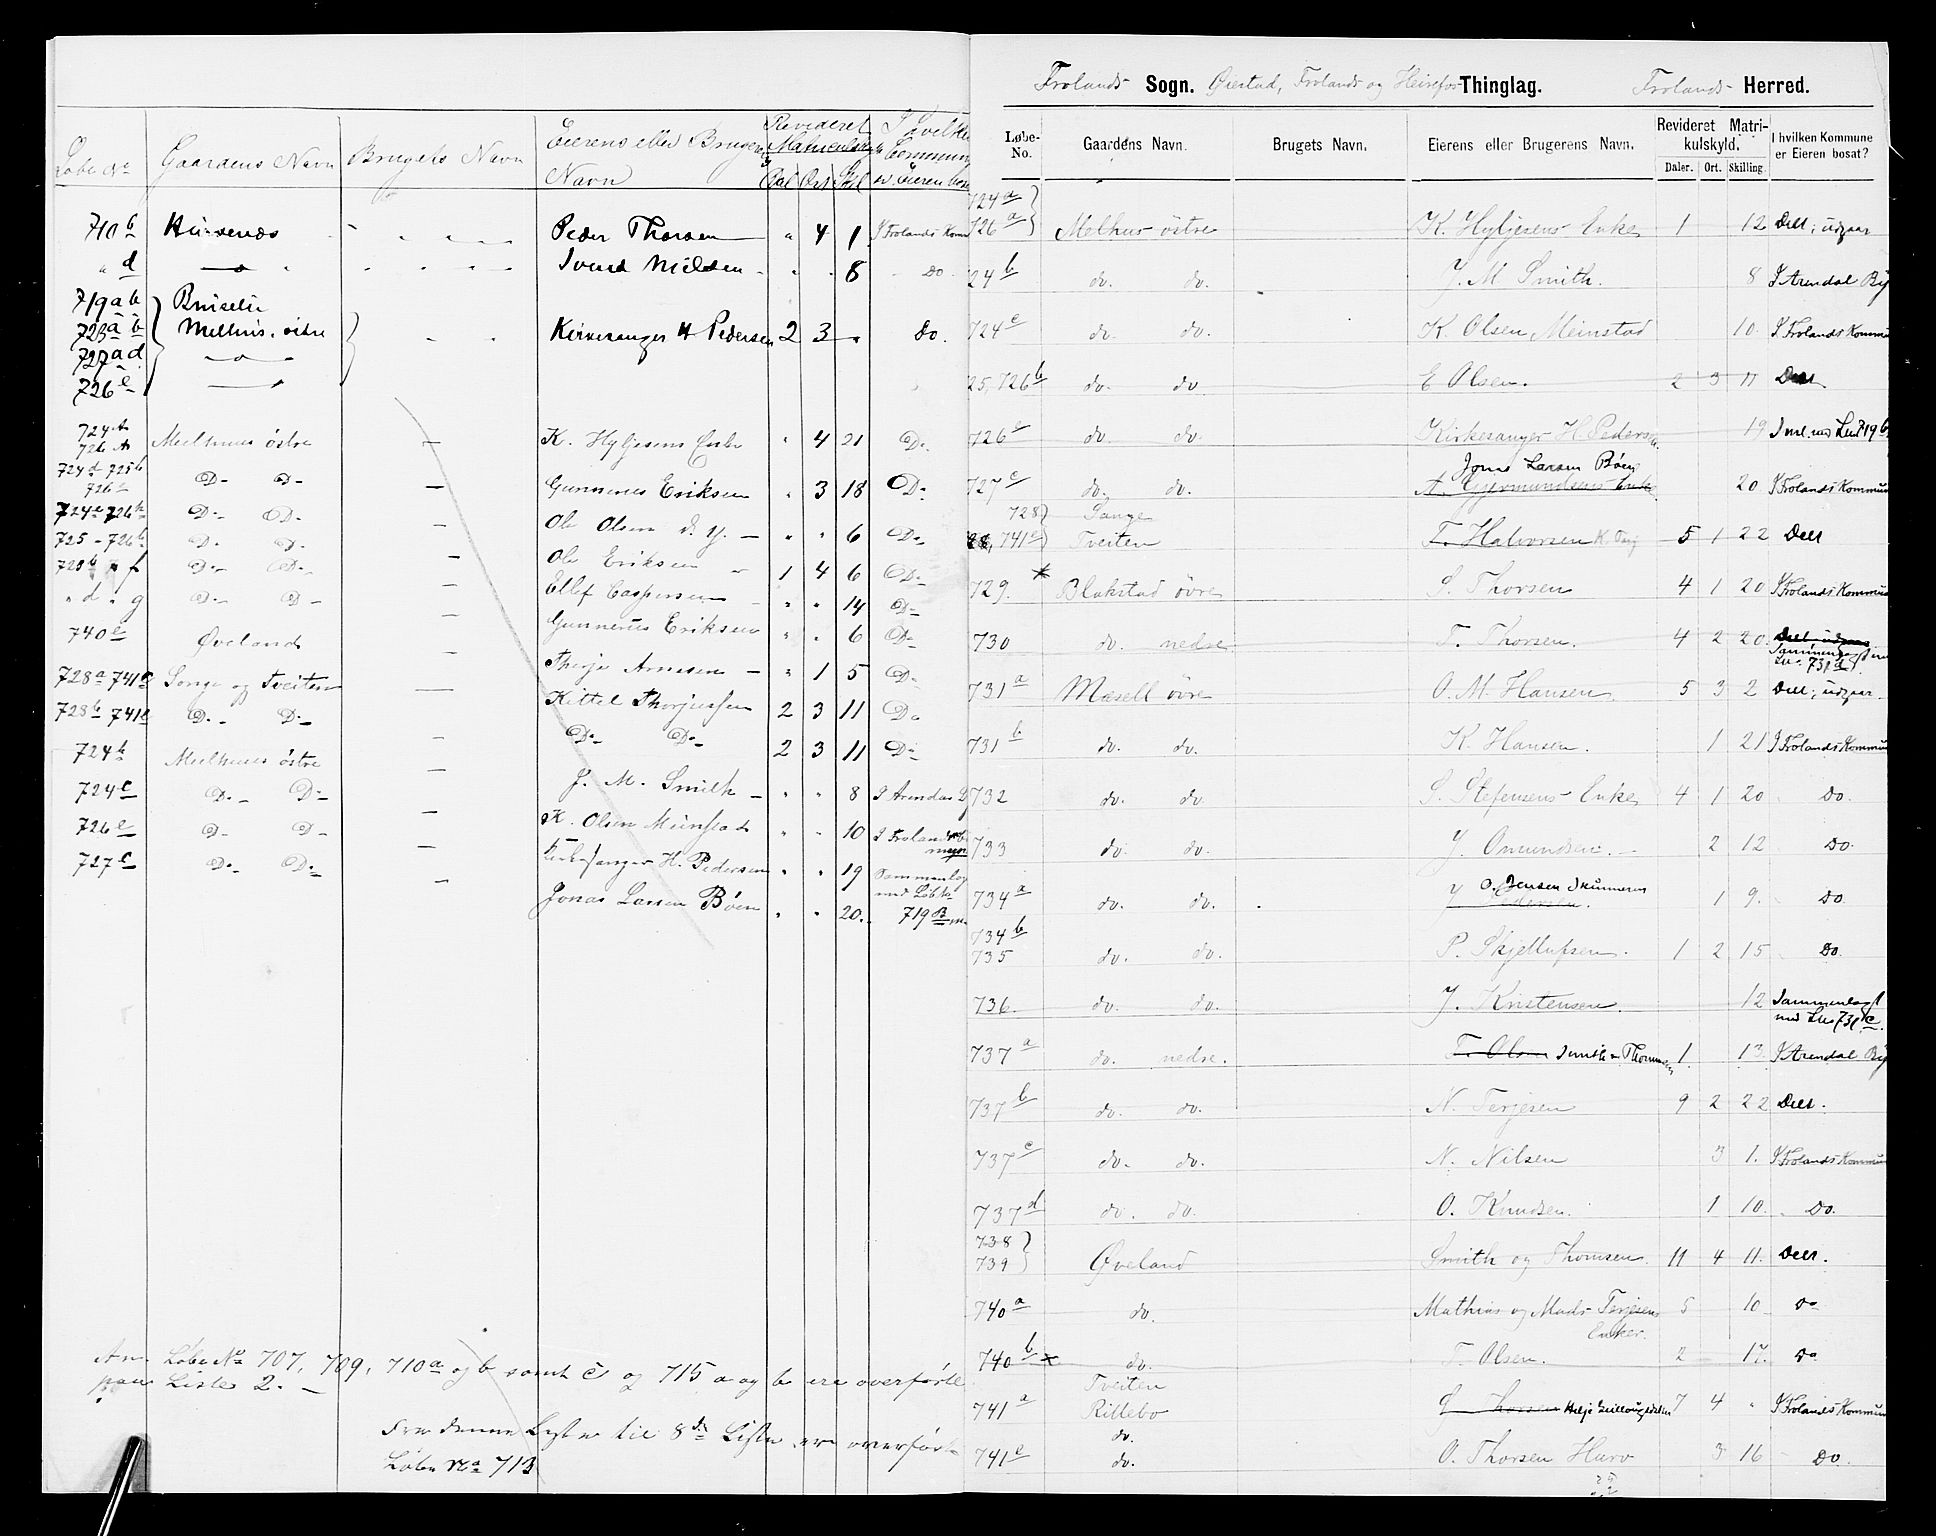 Løbe No Gaardens Navn Brugets Navn Eierens eller Brugerens Navn Revideret Matrikulskyld Dal Ort Skil I hvilken Kommune er Eieren bosat
710 b Peder Thorsen " 4 1 I Frolands Kom
" d Svend Nielsen " " 8 Do
719 a b
723 a b Melhus, östre Kirkesanger H Pedersen 2 3 " Do.
727 a d
726 e
724 A
726 A Melhuus östre — K. Hyljesens Enke " 4 21 Do
724 d 725 b
726 D- D- — Gunnerus Eriksen " 3 18 Do
724 e 726 D- D- — Ole Olsen d. y. — " " 6 Do
725 - 726 D- D- — Ole Eriksen 1 4 6 Do
f D- D- — Ellef Caspersen " " 14 Do
" d " g D- D- — Gunnerus Eriksen " " 6 Do
740 e Øveland — Therje Arnesen — " 1 5 Do
728 a 741 Songe og Tveiten — Kittel Thorjussen 2 3 11 Do
728 b 741 D- D- — Do- Do- 2 3 11 Do
724 b Melhuus östre — J. M. Smith — " " 8 I Arendal
724 c D- D- — K. Olsen Meinstad " " 10 I Froland
726 e D- D- — Kirkesanger H. Pedersen " " 19 Sammenlag
med Løbe
727 c D- D- — Jonas Larsen Bøen " " 20. 719 B
Løbe No 707, 709, 710 a og b samt c og 715 a og b ere overförte
paa Liste 2. —
Fra denne Liste til 8de Liste ere overförte
Løbe No 713
Frolands Sogn. Øiestad, Frolands og Heirefos Thinglag. Frolands Herred.
Løbe-No. Gaardens Navn. Brugets Navn. Eierens eller Brugerens Navn. Revideret Matrikulskyld. I hvilken Kommune er Eieren bosat?
Daler. Ort. Skilling.
724 a
726 a Melhus östre K. Hyljesens Enke 1 12 Deel; udgaar
24 b do. do. J. M. Smith. 8 I Arendal By
724 c do. do. K. Olsen Meinstad 10. I Frolands Kommun
25, 726 b do. do E Olsen. 2 3 11
726 e do. do. Kirkesanger H Pedersen 19
Jons Larsen Bøen
727 c do. do. A. Gjermundsens Enke 20 I Frolands Kommun
728 Songe
741 Tveiten T. Halvorsen 5 1 22 Deel
729. * Blakstad övre S. Thorsen 4 1 20 I Frolands Kommun
730 do. nedre T. Thorsen. 4 2 20. Deel udgaar
731 a Mæsell övre O. M. Hansen 5 3 2 Deel; udgaar.
731 b do. do. K. Hansen. 1 21 I Frolands Kommun
732 do. do. S. Stefensens Enke 4 1 20 Do.
733 do. do. J. Omundsen. 2 12 Do.
O. Jensen
734 a do. do. J Pedersen. 1 9. Do
734 b
735 do. do. P. Skjellufsen. 1 2 15 Do.
736. do. do. J. Kristensen. 12 Sammenlagt
med Lno 731 c.
737 a do. nedre. T. Olsen Smith & Thommesen 1 13. I Arendal By
737 b do. do. N. Terjesen 9 2 22 Deel.
737 c do. do. N. Nilsen 3 1. I Frolands Kommun
737 d do. do. O. Knudsen. 1 10. Do.
738
739 Øveland Smith og Thomsen. 11 4 11. Deel.
740 a do. Mathias og Mads Terjesens 5 10 Do
Enker.
740 b x do. T. Olsen. 2 17. Do
Tveiten
741 a Rillebo Thorsen 7 4 " I Frolands Kommun
do.
741 e do. O. Thorsen Hurv 3 16 Do.